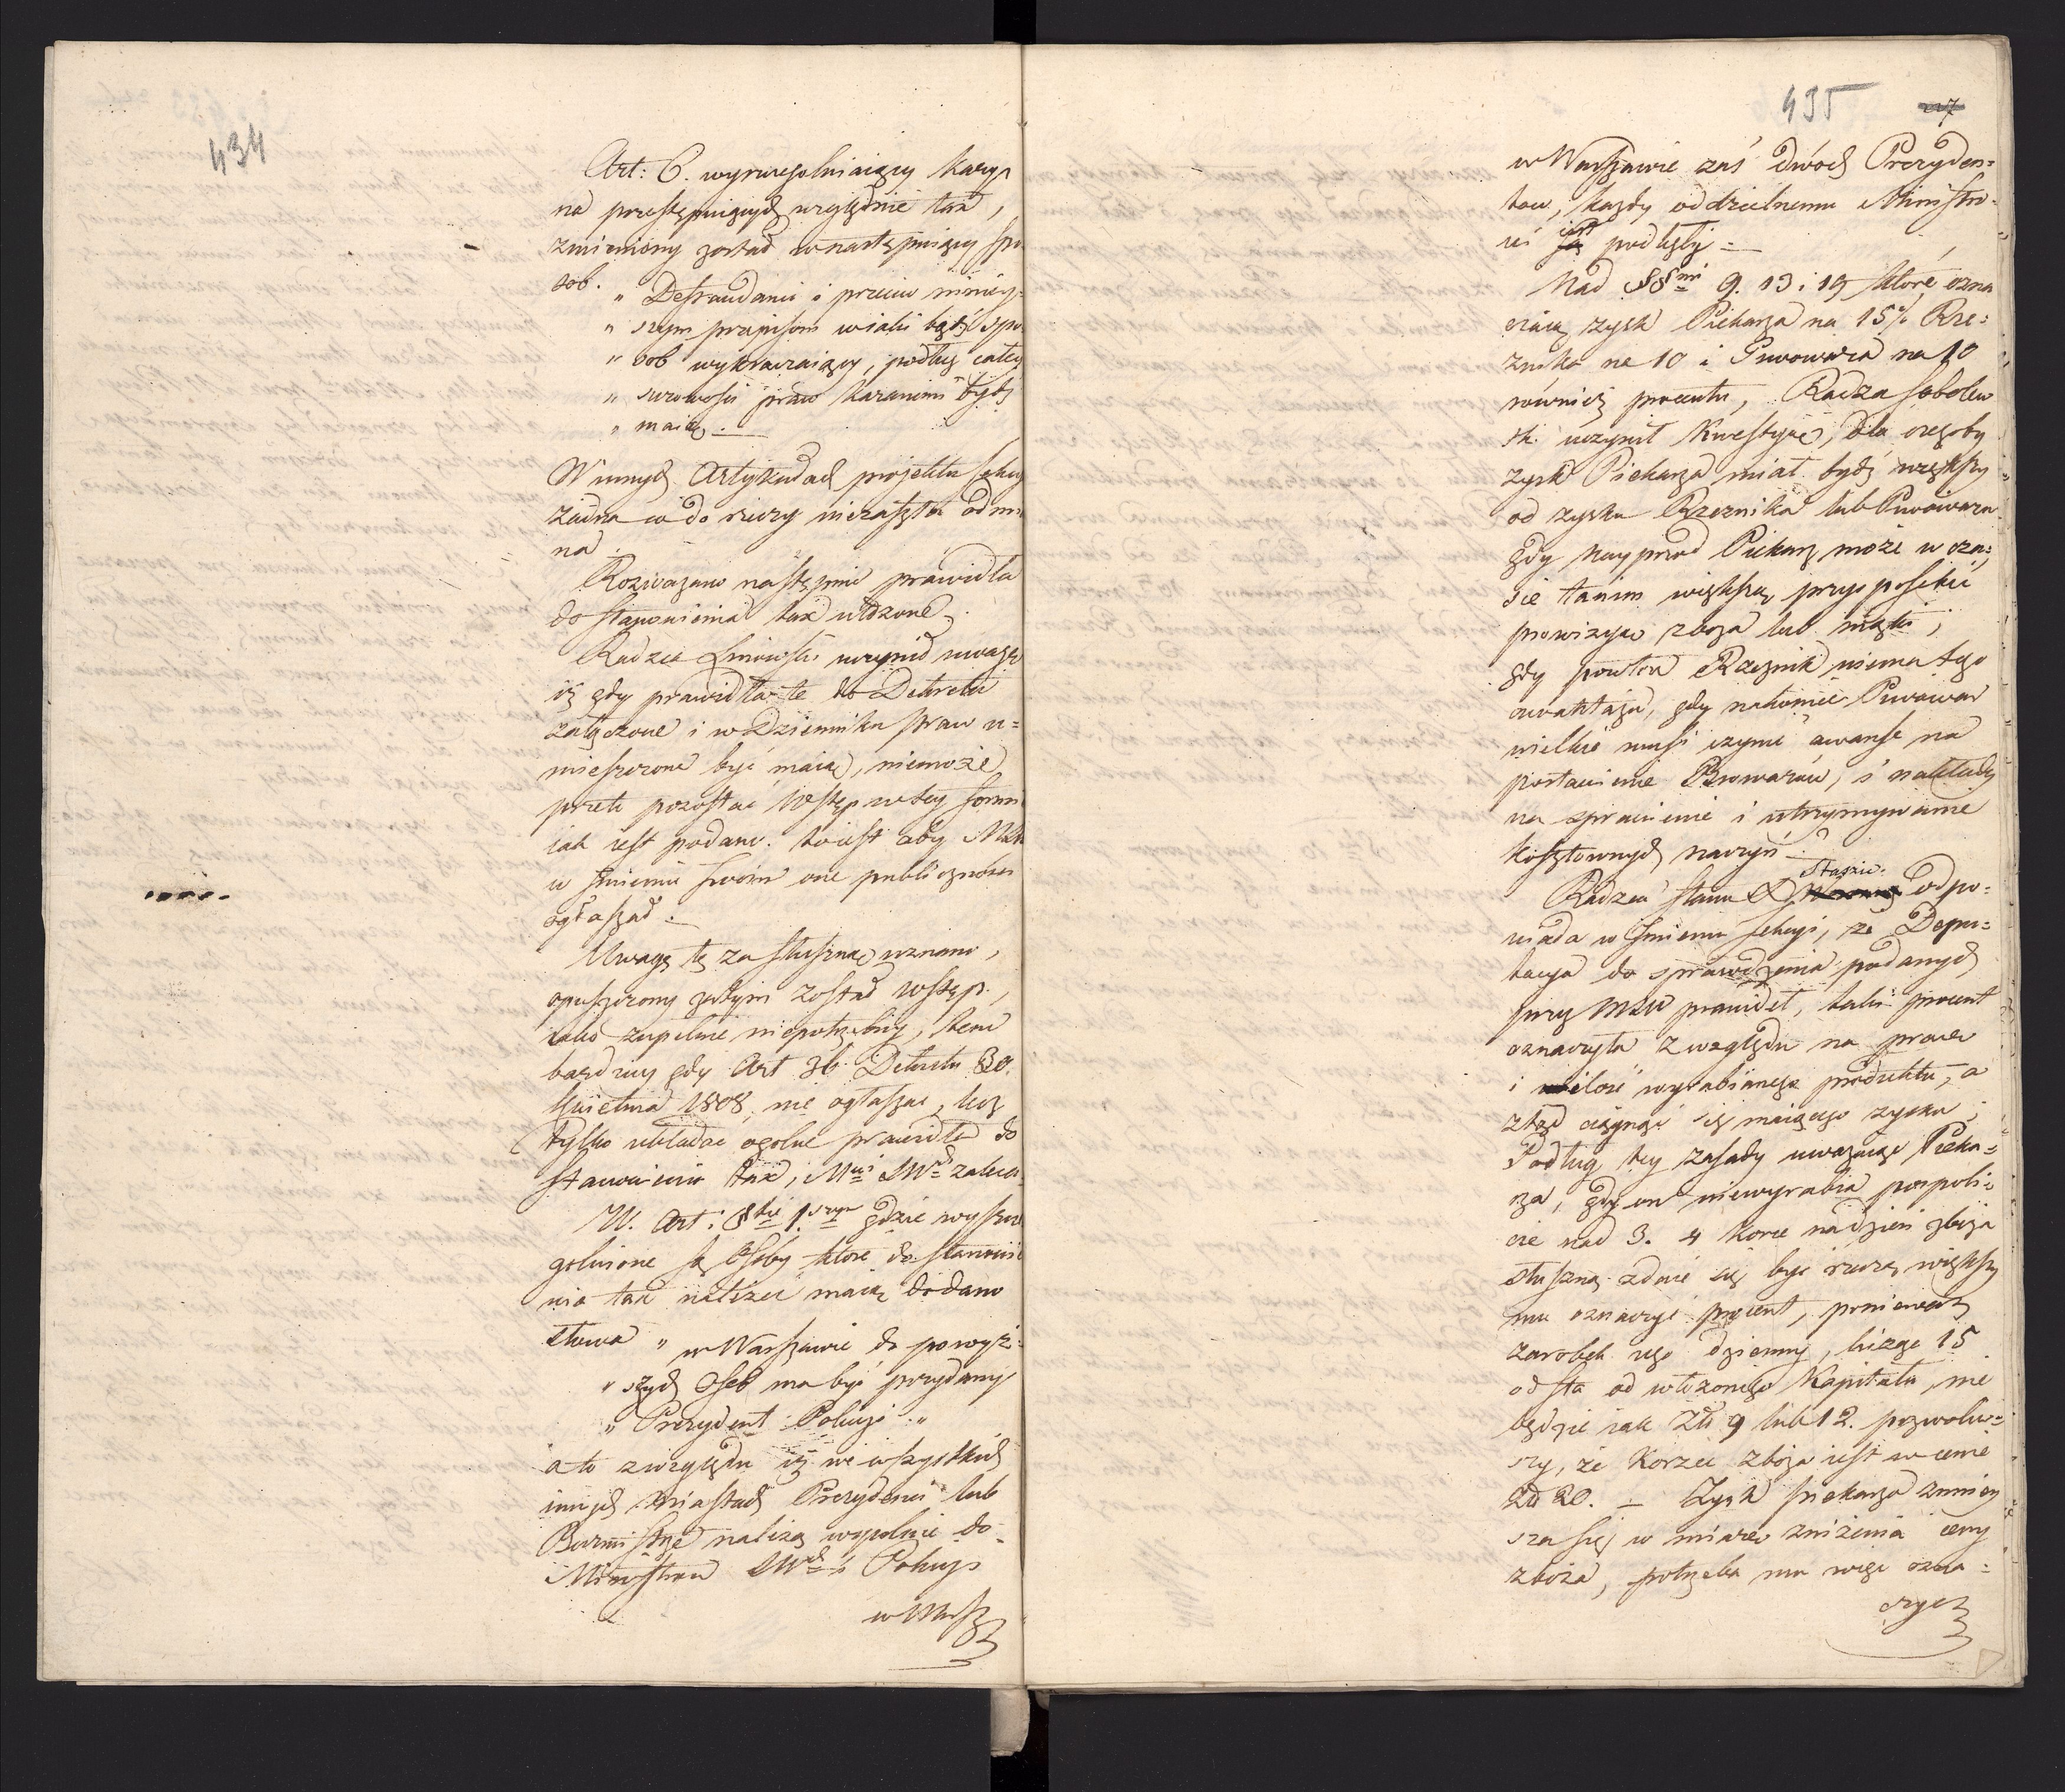 434
Art: 6. wyszczegolniaiący kary
na przestępuiących względnie tax,
zmieniony został w następuiący spo
sob.
" Defraudanci i przeciw niniey-
" szym przepisom w iaki bądź spo
" sob wykraczaiący, podług całey
" surowości praw karanemi bydź
" maią.
W innych Artykułach projektu sekcyi
żadna co do rzeczy niezaszła odmia
na.
Rozważano następnie prawidła
do stanowienia tax ułożone.
Radzca Linowski uczynił uwagę
iż gdy prawidła te do Dekretu
załączone i w Dzienniku praw u=
mieszczone być maią, niemoże
przeto pozostać Wstęp w tey formie
iak iest podano. to iest aby Mter
w Imieniu swoim one publiczności
ogłaszał.
Uwagę tę za słuszną uznano,
opuszczony zatym został Wstęp,
iako zupełnie niepotrzebny, tem
bardziey gdy Art 36 Dekretu 30.
Kwietnia 1808, nie ogłaszać, lecz
tylko układać ogolne prawidła do
stanowienia tax, Mwi SWch zaleca.
W. Art: §fie 1szym gdzie wyszcze
golnione są Osoby ktore do stanowie
nia tax należeć maią dodano
słowa " w Warszawie do powyż=
" szych Osob ma być przydany
" Prezydent Policyi. "
a to z względu iż we wszystkich
innych Miastach Prezydenci lub
Burmistrze należą wspolnie do
Ministrow SWch i Policyi
w Warsz
435
227
w Warszawie zaś dwóch Prezyden=
tow, każdy oddzielnemu Ministro=
wi iest podległy =
Nad §§mi 9. 13 i 19 ktore ozna
czaią zysk Piekarza na 15% Rze=
znika na 10 i Piwowara na 10
rownież procentu, Radzca Sobolew
ski uczynił Kwestyię, dla czegoby
zysk Piekarza miał bydź większy
od zysku Rzeznika lub Piwowara
gdy nayprzod Piekarz może w cza=
sie tanim większą przysposobić
prowizyę zboża lub mąki,
gdy powtore Rzeznik niema tego
awantażu, gdy nakoniec Piwowar
wielkie musi czynić awanse na
postawienie Browarów, i nakłady
na sprawienie i utrzymywanie
kosztownych naczyń.
Staszic.
Radzca Stanu X. odpo=
wiada w Imieniu Sekcyi, że Depu=
tacya do sprawdzenia podanych
przez MSW prawideł, taki procent
oznaczyła z względu na pracę
i ilość wyrabianego produktu, a
ztąd ciągnąć się maiącego zysku;
Podług tey zasady uważaiąc Pieka=
rza, gdy on niewyrabia pospoli=
cie nad 3. 4 korce na dzień zboża
słuszną zdaie się być rzeczą większy
mu oznaczyć procent, ponieważ
zarobek iego dzienny, licząc 15
od sta od włożonego Kapitału, nie
będzie iak Zł 9 lub 12. pozwoliw=
szy, że Korzec zboża iest w cenie
Zł 20. — Zysk piekarza zmniey
sza się w miarę zniżenia ceny
zboża, potrzeba mu więc ozna=
czyć